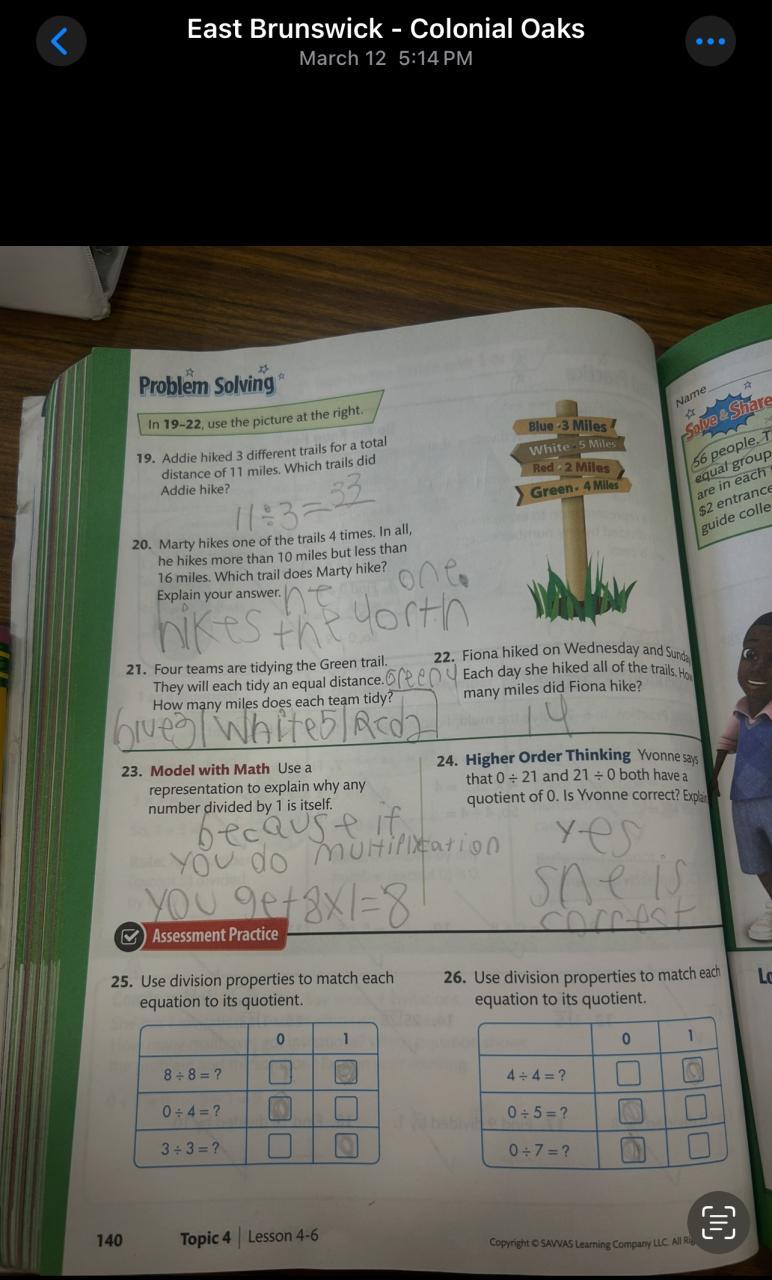 East Brunswick - Colonial Oaks
March 12 5:14 PM
Problem Solving
In 19–22, use the picture at the right.
19. Addie hiked 3 different trails for a total
distance of 11 miles. Which trails did
Addie hike?
11÷3=33
20. Marty hikes one of the trails 4 times. In all,
he hikes more than 10 miles but less than
16 miles. Which trail does Marty hike?
Explain your answer.
he one.
hikes the
Blue - 3 Miles
White - 5 Miles
Red - 2 Miles
Green - 4 Miles
21. Four teams are tidying the Green trail.
They will each tidy an equal distance.
How many miles does each team tidy?
Green 4
blue3|White5|Red2
22. Fiona hiked on Wednesday and
Each day she hiked all of the trails.
many miles did Fiona hike?
14
23. Model with Math Use a
representation to explain why any
number divided by 1 is itself.
because if
you do
you get 8x1=8
24. Higher Order Thinking Yvonne says
that 0 ÷ 21 and 21 ÷ 0 both have a
quotient of 0. Is Yvonne correct?
yes
she is
Assessment Practice
25. Use division properties to match each
equation to its quotient.
0 1
8 ÷ 8 = ?
0 ÷ 4 = ?
3 ÷ 3 = ?
26. Use division properties to match each
equation to its quotient.
0 1
4 ÷ 4 = ?
0 ÷ 5 = ?
0 ÷ 7 = ?
140 Topic 4 | Lesson 4-6
Copyright © SAVVAS Learning Company LLC. All
Name
Solve & Share
56 people. T
equal group
are in each
$2 entrance
guide colle